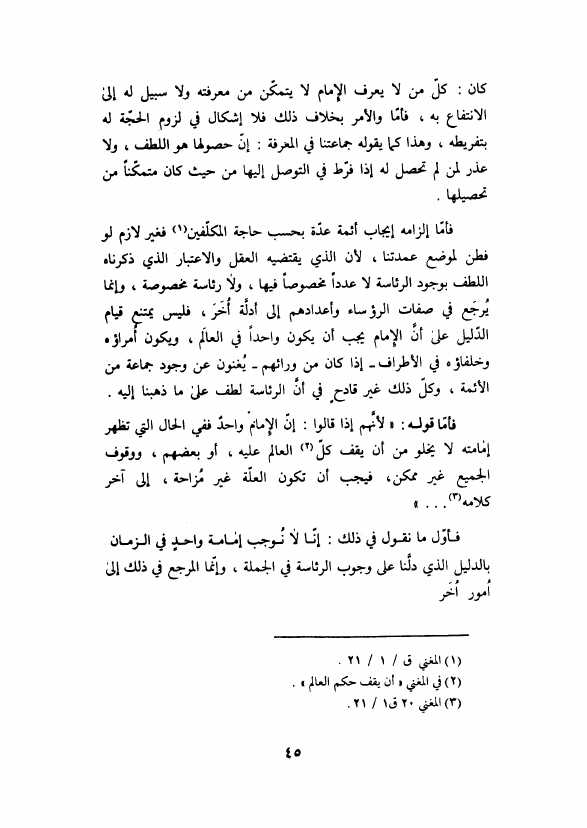 كان : كلّ من لا يعرف الإِمام لا يتمكّن من معرفته ولا سبيل له إلىٰ
الانتفاع به ، فأمّا والأمر بخلاف ذلك فلا إشكال في لزوم الحجّة له
بتفريطه ، وهذا كما يقوله جماعتنا في المعرفة : إنّ حصولها هو اللطف ، ولا
عذر لمن لم تحصل له إذا فرّط في التوصل إليها من حيث كان متمكّناً من
تحصيلها .
فأمّا إلزامه إيجاب أئمة عدّة بحسب حاجة المكلّفين(١) فغير لازم لو
فطن لموضع عمدتنا ، لأن الذي يقتضيه العقل والاعتبار الذي ذكرناه
اللطف بوجود الرئاسة لا عدداً مخصوصاً فيها ، ولا رئاسة مخصوصة ، وإنما
يُرجَع في صفات الرؤساء وأعدادهم إلى أدلَّة أُخَرَ ، فليس يمتنع قيام
الدّليل علىٰ أنَّ الإمام يجب أن يكون واحداً في العالَم ، ويكون أُمراؤه
وخلفاؤه في الأطراف ـ إذا كان من ورائهم ـ يُغنون عن وجود جماعة من
الأئمة ، وكلّ ذلك غير قادحٍ في أنَّ الرئاسة لطف علىٰ ما ذهبنا إليه .
فأمّا قوله : « لأنَّهم إذا قالوا : إنّ الإِمامَ واحدٌ ففي الحال التي تظهر
إمامته لا يخلو من أن يقف كلّ(٢) العالم عليه ، أو بعضهم ، ووقوف
الجميع غير ممكن، فيجب أن تكون العلّة غير مُزاحة ، إلى آخر
كلامه(٣) . . . »
فـأوّل ما نقـول في ذلك : إنّـا لاٰ نُـوجب إمامـة واحـدٍ في الـزمـان
بالدليل الذي دلَّنا على وجوب الرئاسة في الجملة ، وإنّما المرجع في ذلك إلىٰ
أمور أُخَر
(١) المغني ق / ١ / ٢١ .
(٢) في المغني « أن يقف حكم العالم » .
(٣) المغني ٢٠ ق١ / ٢١ .
٤٥